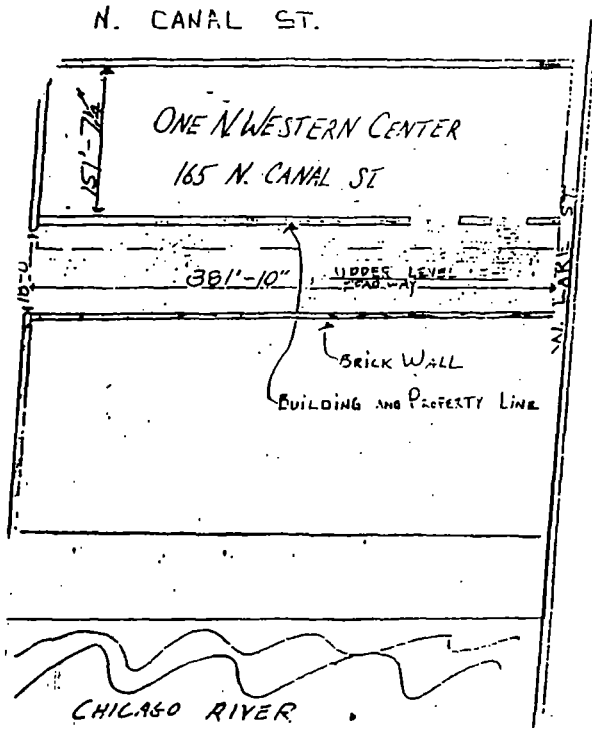 N. CANAL ST.
151'-7½"
ONE N WESTERN CENTER
165 N. CANAL ST
381'-10"
UPPER LEVEL
ROADWAY
W. LAKE ST.
BRICK WALL
BUILDING AND PROPERTY LINE
CHICAGO RIVER